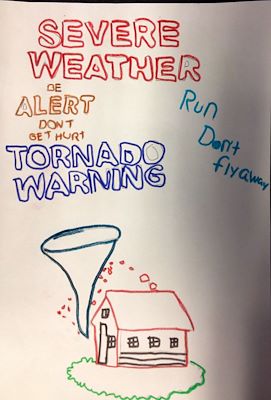 SEVERE
WEATHER
BE
ALERT
DON'T
GET HURT
TORNADO
WARNING
Run
Don't
fly away